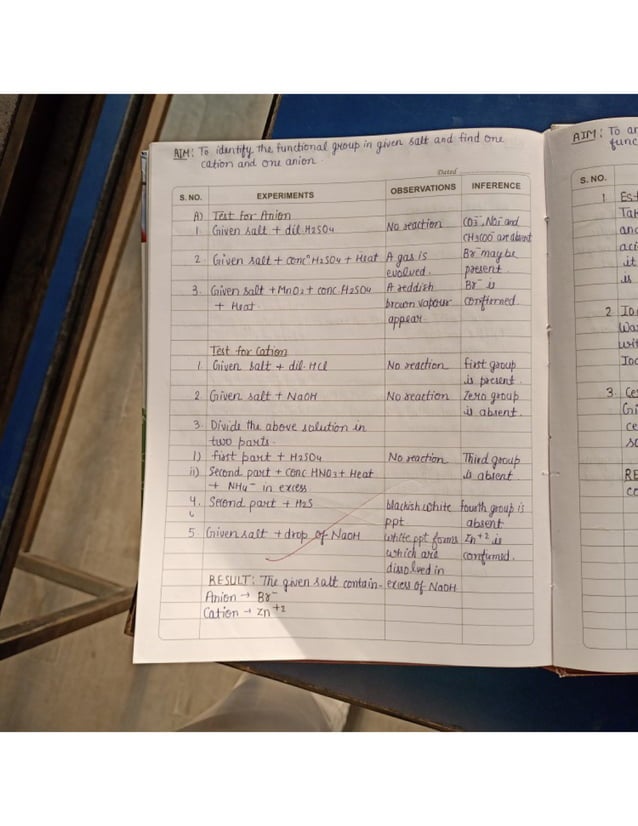 AIM: To identify the functional group in given salt and find one
cation and one anion.
Dated
S. NO. EXPERIMENTS OBSERVATIONS INFERENCE
A) Test for Anion
1. Given salt + dil. H2SO4 No reaction CO3⁻, NO2⁻ and
CH3COO⁻ are absent
2. Given salt + concⁿ H2SO4 + Heat A gas is Br⁻ may be
evolved. present.
3. Given salt + MnO2 + conc. H2SO4 A reddish Br⁻ is
+ Heat. brown vapour confirmed.
appear.
Test for Cation
1. Given salt + dil. HCl No reaction first group
is present.
2. Given salt + NaOH No reaction Zero group
is absent.
3. Divide the above solution in
two parts.
i) first part + H2SO4 No reaction Third group
ii) Second part + conc HNO3 + Heat is absent
+ NH4⁻ in excess
4. Second part + H2S blackish white fourth group is
ppt absent
5. Given salt + drop of NaOH white ppt forms Zn⁺² is
which are confirmed.
dissolved in
RESULT: The given salt contain- excess of NaOH
Anion → Br⁻
Cation → Zn⁺²
AIM: To
func
S. NO.
1
and
it
is
2
3.
ce
RE
co